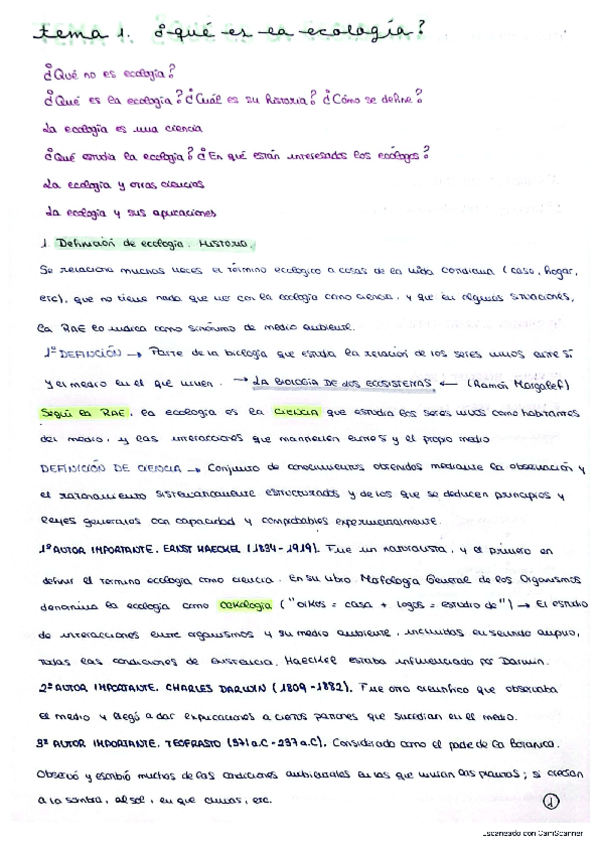 tema 1. ¿qué es la ecología?
¿Qué no es ecología?
¿Qué es la ecología? ¿Cuál es su historia? ¿Cómo se define?
La ecología es una ciencia
¿Qué estudia la ecología? ¿En qué están interesados los ecólogos?
La ecología y otras ciencias
La ecología y sus aplicaciones
1. Definición de ecología. Historia.
Se relaciona muchas veces el término ecológico a cosas de la vida cotidiana (casa, hogar,
etc), que no tiene nada que ver con la ecología como ciencia, y que en algunas situaciones,
la RAE lo indica como sinónimo de medio ambiente.
1ª DEFINICIÓN → Parte de la biología que estudia la relación de los seres vivos entre sí
y el medio en el que viven. → LA BIOLOGÍA DE LOS ECOSISTEMAS ← (Ramón Margalef)
Según la RAE, la ecología es la ciencia que estudia los seres vivos como habitantes
del medio, y las interacciones que mantienen entre sí y el propio medio
DEFINICIÓN DE CIENCIA → Conjunto de conocimientos obtenidos mediante la observación y
el razonamiento sistemáticamente estructurados y de los que se deducen principios y
leyes generales con capacidad y comprobables experimentalmente.
1º AUTOR IMPORTANTE. ERNST HAECKEL (1834-1919). Fue un naturalista, y el primero en
definir el término ecología como ciencia. En su libro Morfología General de los Organismos
denomina la ecología como oekologia ("oikos = casa + logos = estudio de") → El estudio
de interacciones entre organismos y su medio ambiente, incluidas en sentido amplio,
todas las condiciones de existencia. Haeckel estaba influenciado por Darwin.
2º AUTOR IMPORTANTE. CHARLES DARWIN (1809-1882). Fue otro científico que observaba
el medio y llegó a dar explicaciones a ciertos patrones que sucedían en el medio.
3º AUTOR IMPORTANTE. TEOFRASTO (371 a.C - 287 a.C). Considerado como el padre de la Botánica.
Observó y escribió muchas de las condiciones ambientales en las que vivían las plantas; si crecían
a la sombra, al sol, en que climas, etc.
1
Escaneado con CamScanner